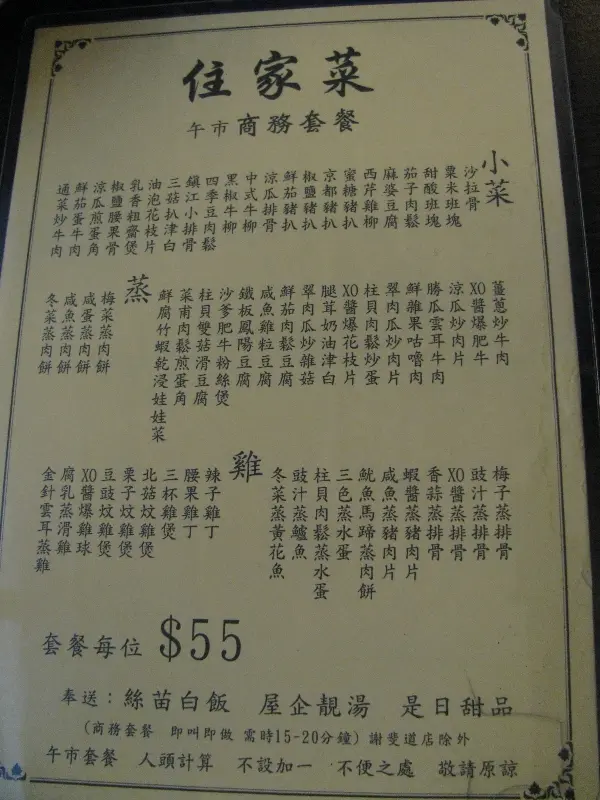 住家菜
午市 商務套餐
小菜
沙拉骨
粟米班塊
甜酸班塊
茄子肉鬆
麻婆豆腐
西芹雞柳
蜜糖豬扒
京都豬扒
椒鹽豬扒
鮮茄豬扒
涼瓜排骨
中式牛柳
黑椒牛柳
四季豆肉鬆
鎮江小排骨
三菇扒津白
油泡花枝片
乳香粗齋煲
椒鹽腰果骨
涼瓜煎蛋角
鮮茄蛋牛肉
通菜炒牛肉
薑蔥炒牛肉
XO醬爆肥牛
涼瓜炒肉片
勝瓜雲耳牛肉
鮮雜果咕嚕肉
翠肉瓜炒肉片
柱貝肉鬆炒蛋
XO醬爆花枝片
腿茸奶油津白
翠肉瓜炒雜菇
鮮茄肉鬆豆腐
咸魚雞粒豆腐
鐵板鳳陽豆腐
沙爹肥牛粉絲煲
柱貝雙菇滑豆腐
菜甫肉鬆煎蛋角
鮮腐竹蝦乾浸娃娃菜
蒸
梅菜蒸肉餅
咸蛋蒸肉餅
咸魚蒸肉餅
冬菜蒸肉餅
梅子蒸排骨
豉汁蒸排骨
XO醬蒸排骨
香蒜蒸排骨
蝦醬蒸豬肉片
咸魚蒸豬肉片
魷魚馬蹄蒸肉餅
三色蒸水蛋
柱貝肉鬆蒸水蛋
豉汁蒸鱸魚
冬菜蒸黃花魚
雞
辣子雞丁
腰果雞丁
三杯雞煲
北菇炆雞煲
栗子炆雞煲
豆豉炆雞煲
XO醬爆雞球
腐乳蒸滑雞
金針雲耳蒸雞
套餐每位 $55
奉送：絲苗白飯 屋企靚湯 是日甜品
(商務套餐 即叫即做 需時15-20分鐘) 謝斐道店除外
午市套餐 人頭計算 不設加一 不便之處 敬請原諒